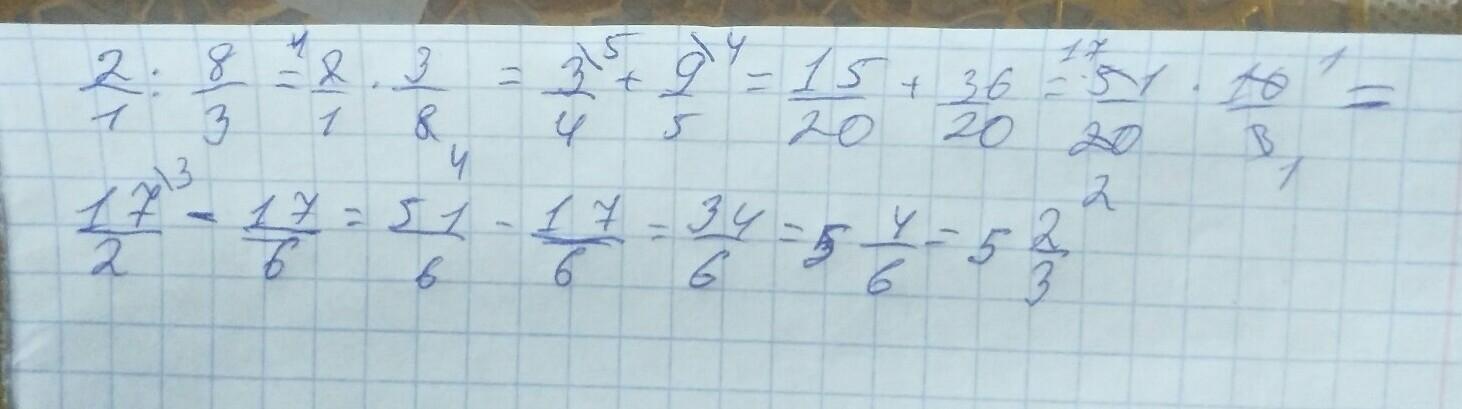 2/1 : 8/3 = 2/1 · 3/8 = 3\5/4 + 9\4/5 = 15/20 + 36/20 = 51 17/20 2 · 10 1/3 1 =
17\3/2 - 17/6 = 51/6 - 17/6 = 34/6 = 5 4/6 = 5 2/3